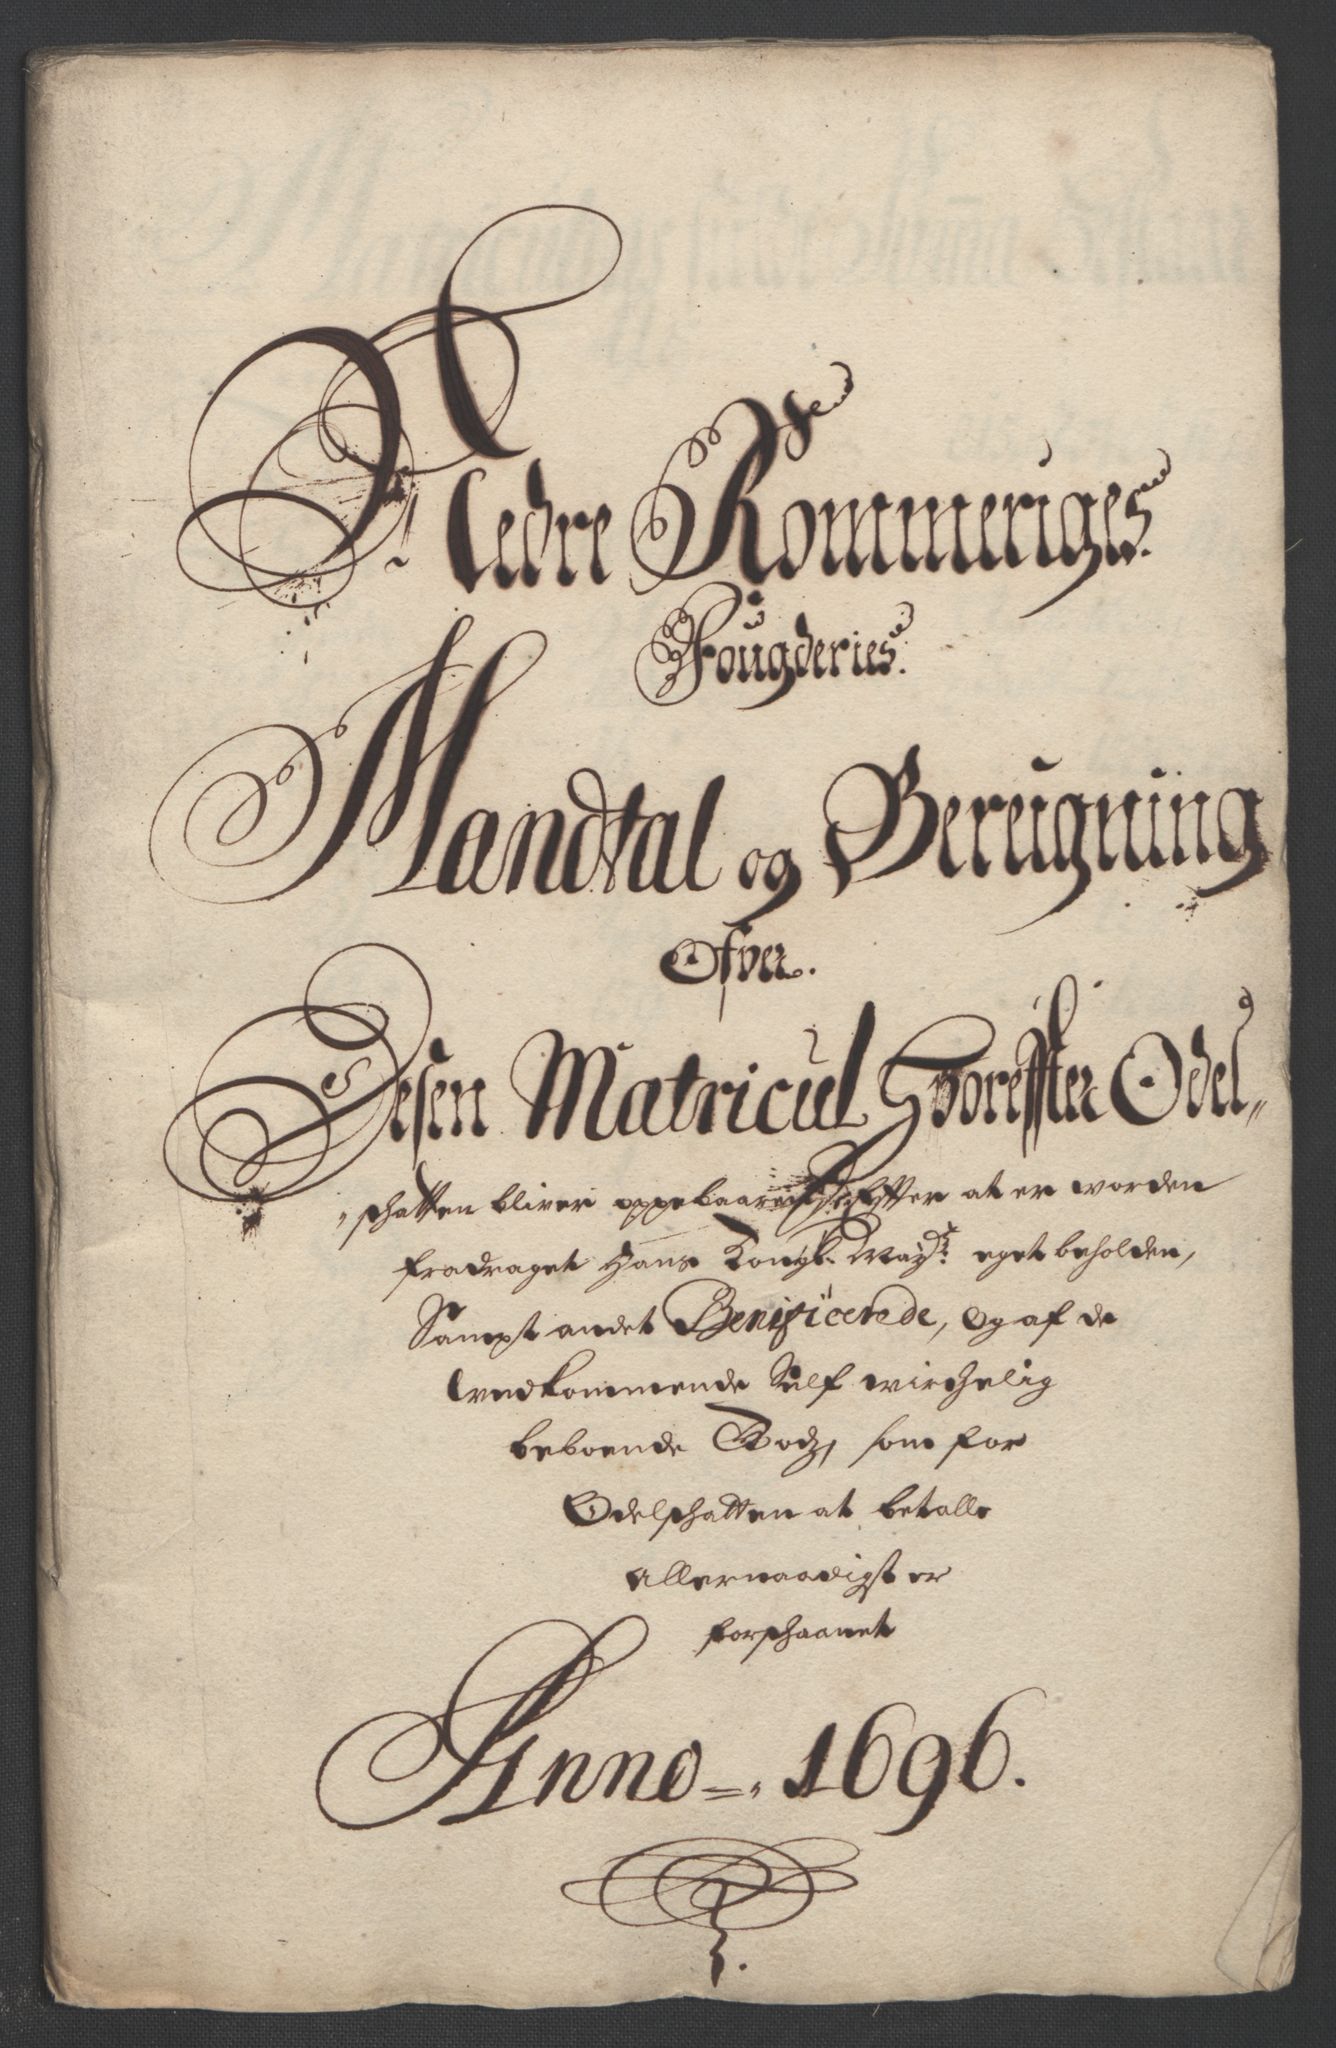 Nedre Rommeriges
Fougderies
Mandtal og Beregning
Ofver
Desen Matricul Hvorefter Odel„
„schatten bliver oppebaaren, Efter at er worden
fradraget Hans Kongl. Mayts eget beholden,
Sampt andet Benificerede, og af de
wedkommende Self wirchelig
beboende Godz, som for
Odelschatten at betalle
allernaadigst er
forschaanet
Anno =„ 1696.